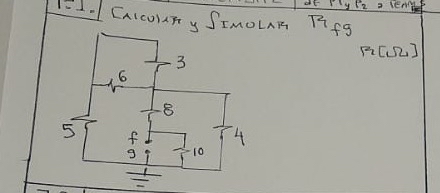 CALCULAR y SIMULAR Rfg
R[Ω]
3
6
8
5
4
f
g
10